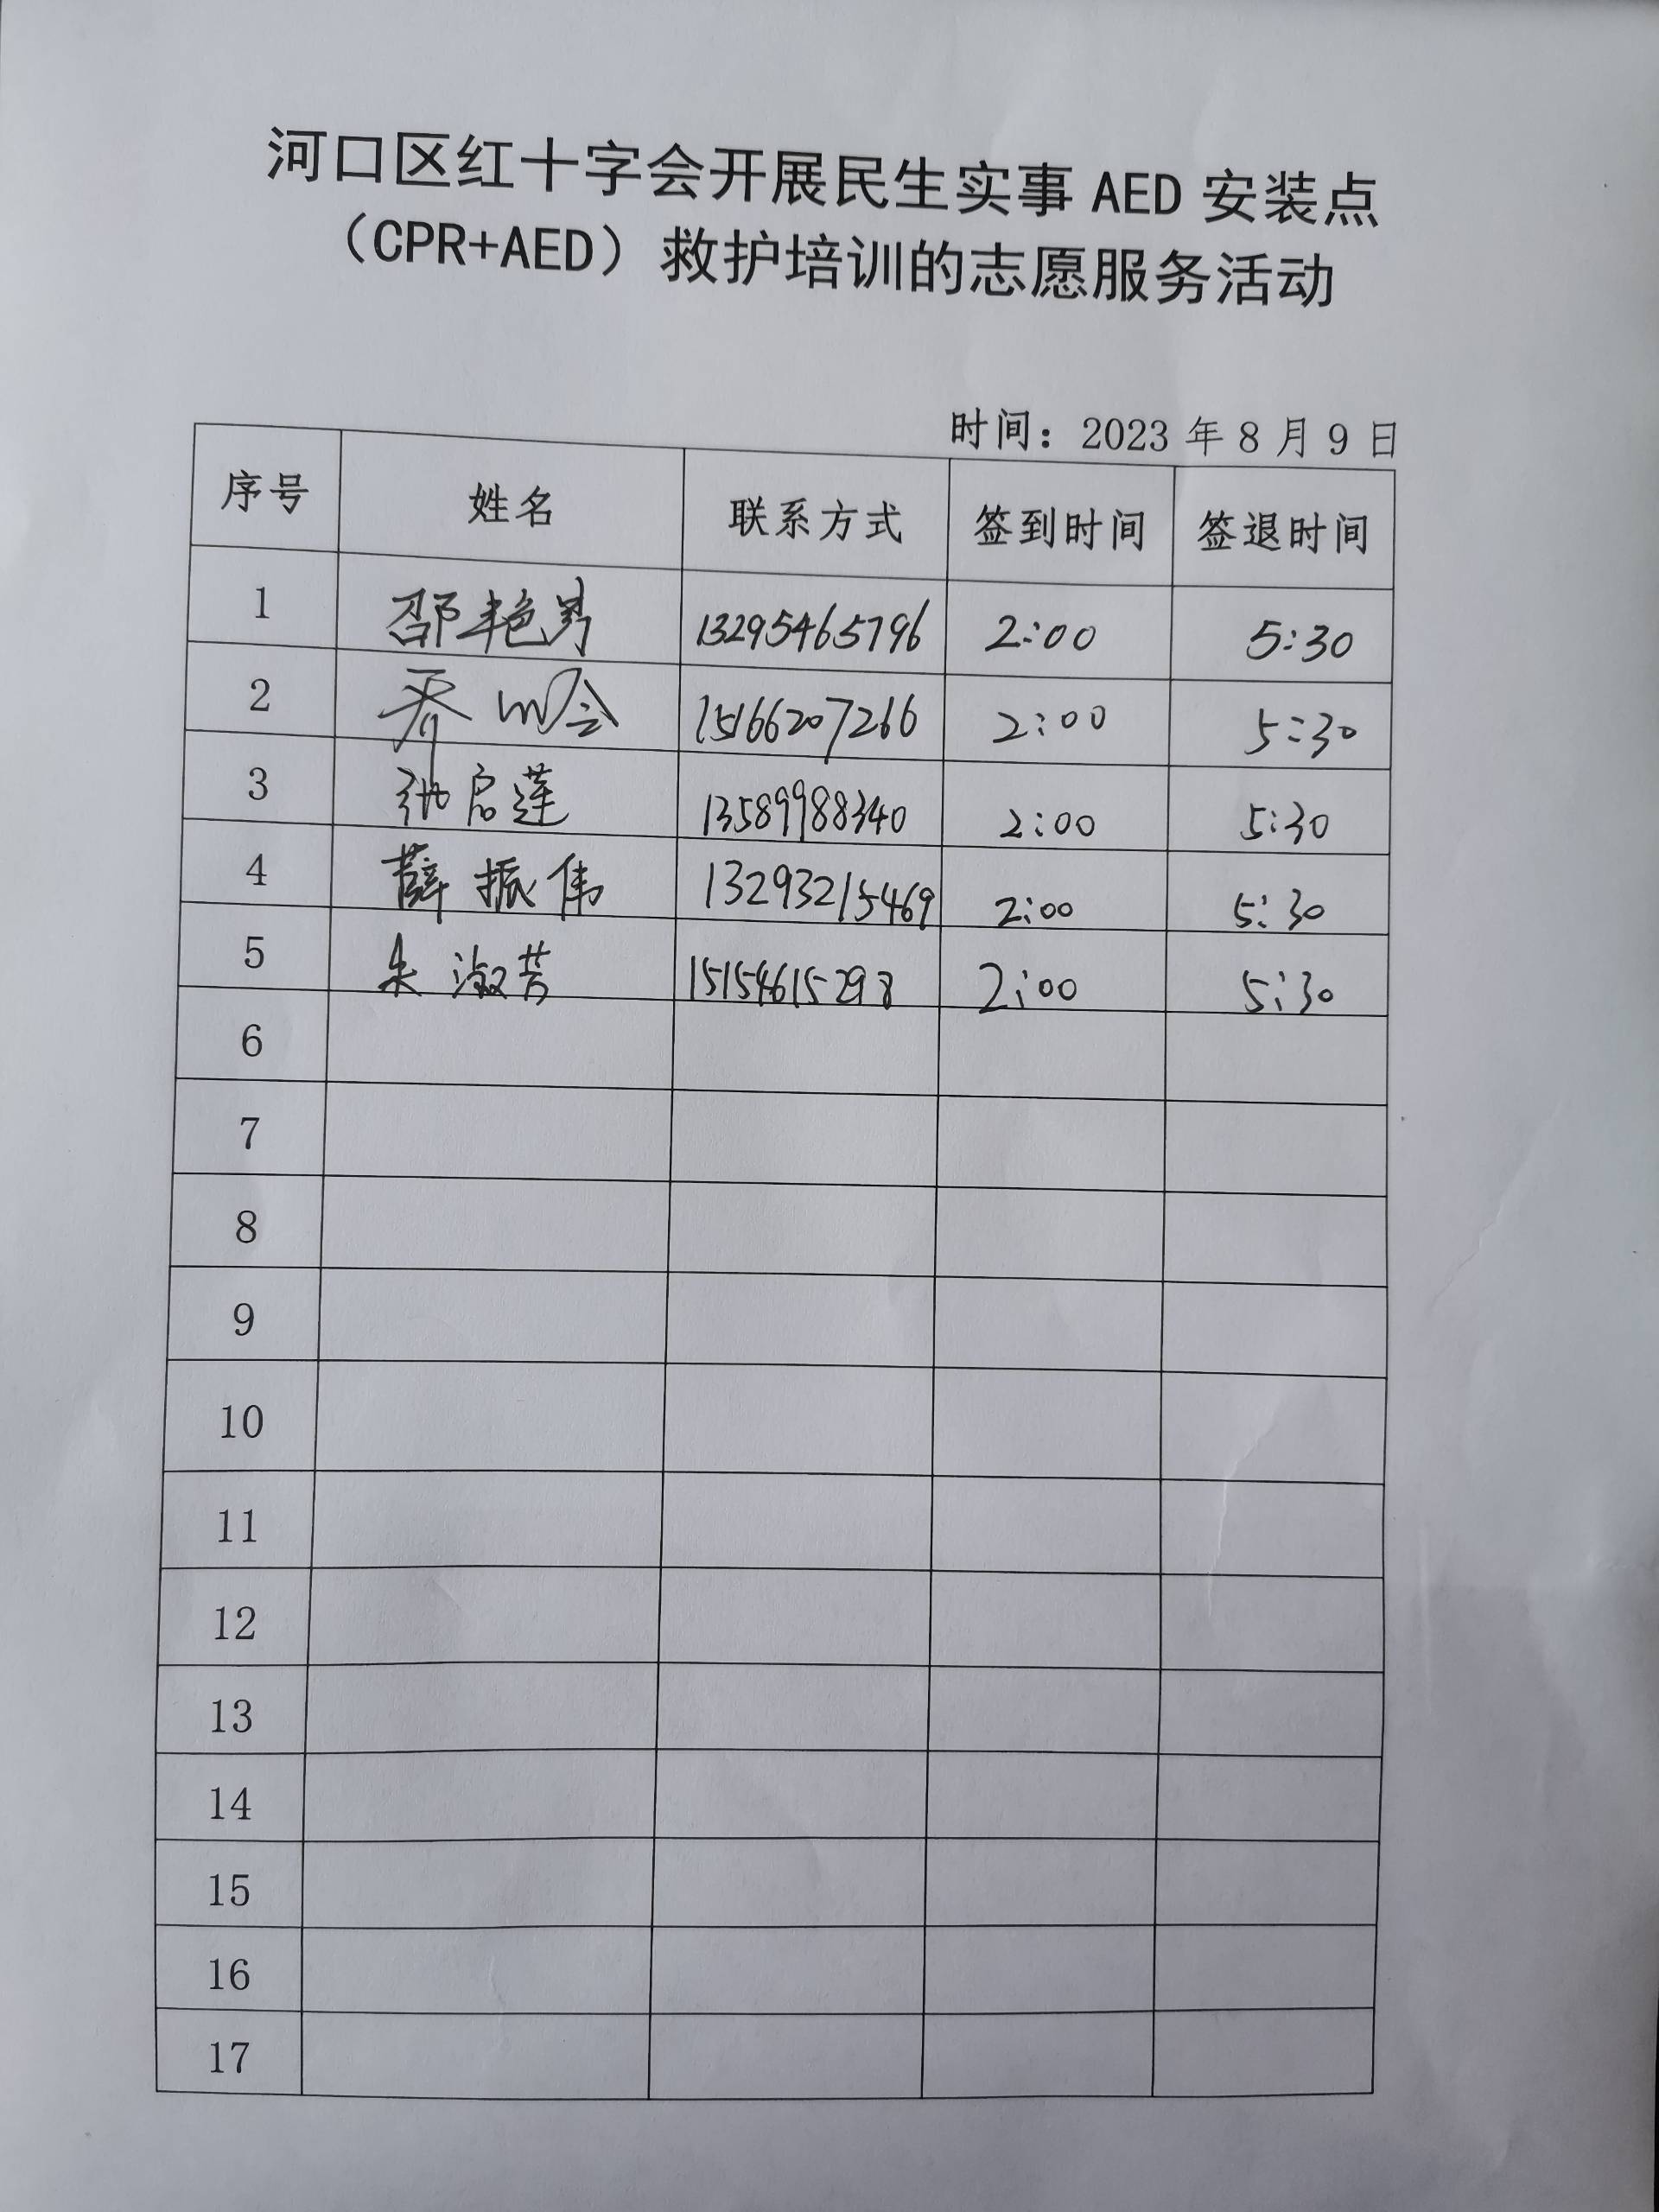 河口区红十字会开展民生实事 AED 安装点
（CPR+AED）救护培训的志愿服务活动
时间：2023 年 8 月 9 日
序号 姓名 联系方式 签到时间 签退时间
1 邵艳男 13295465796 2:00 5:30
2 乔 15166207266 2:00 5:30
3 张启莲 13589988340 2:00 5:30
4 薛振伟 13293215469 2:00 5:30
5 朱淑芳 15154615298 2:00 5:30
6
7
8
9
10
11
12
13
14
15
16
17